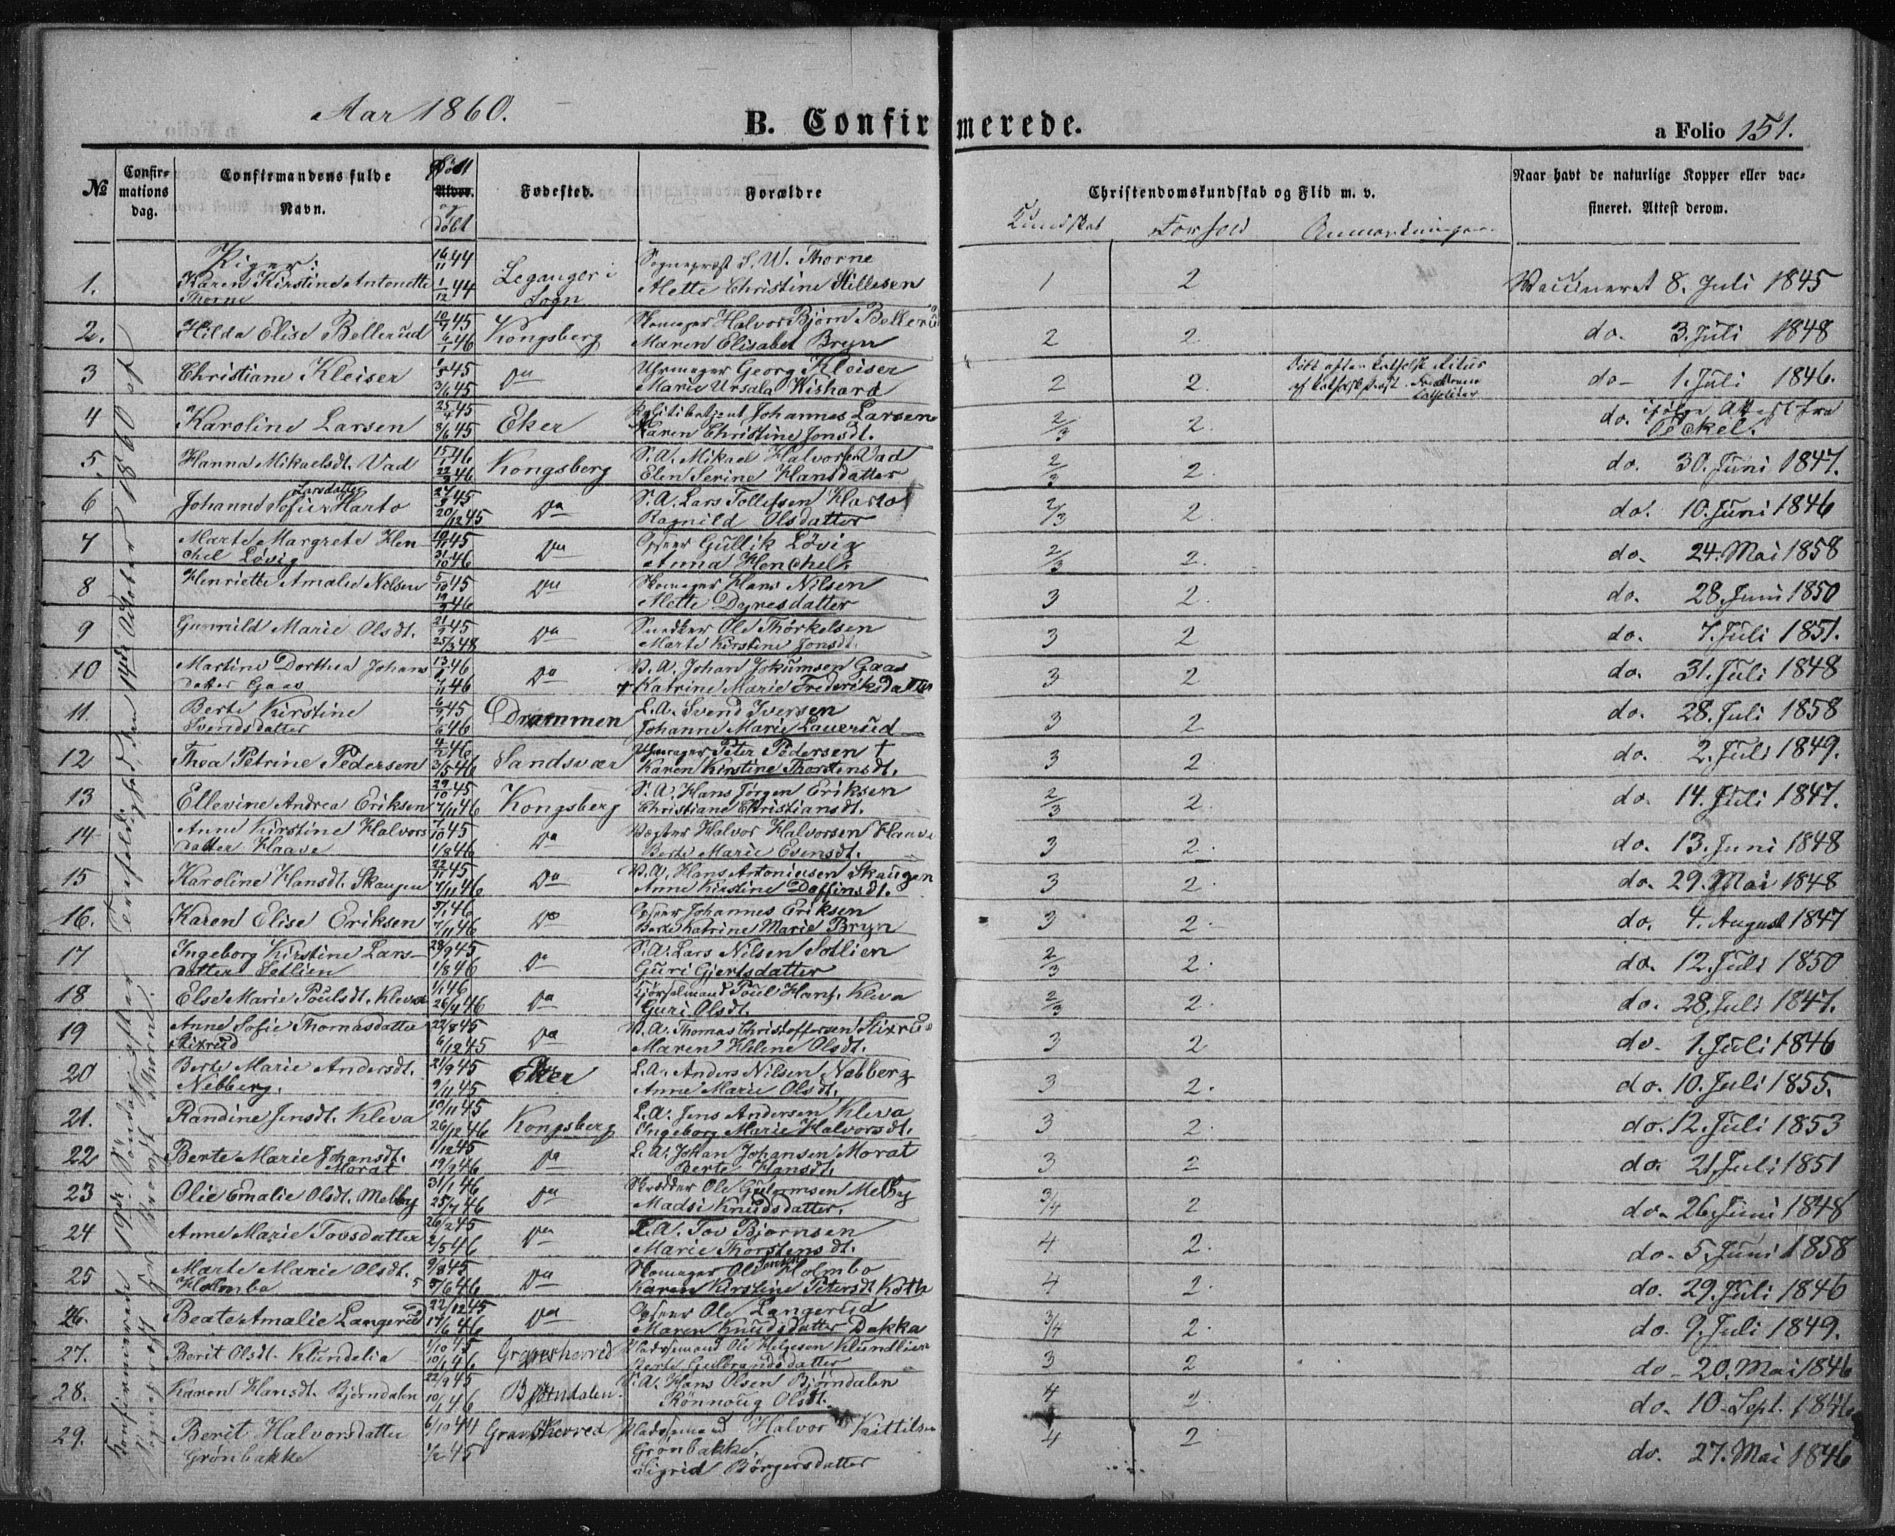 Aar 1860.
B. Confirmerede.
a Folio 151.
No
Confirmations dag.
Confirmandens fulde Navn.
Født og Døbt
Fødested.
Forældre
Christendomskundskab og Flid m. v.
Kundskab Forhold Anmærkninger
Naar havt de naturlige Kopper eller vacsineret. Attest derom.
Confirmerede 19de Søndag efter Trefoldighed, den 14de October 1860 af
Sogneprest og Provst Thorne.
Piger:
1. Karen Kirstine Antonette Thorne 16/11 44 1/12 44 Leganger i Sogn Sogneprest S. W. Thorne Alette Christine Stillesen 1 2 Vaccineret 8. Juli 1845
2. Hilda Elise Bollerud 45 46 Kongsberg Skomager Halvor Bjørn Bollerud Maren Elisabet Bryn 2 2 do. 3. Juli 1848
3 Christiane Kleiser 45 45 Do Uhrmager Georg Kleiser Marie Ursala Wishard 2 2. do 1. Juli 1846.
4 Karoline Larsen 25/4 45 8/6 45 Eker Politibetjent Johannes Larsen Karen Christine Jonsdt. 2/3 2. do. ifølge Attest fra
5 Hanna Mikaelsdt. Vad 46 46 Kongsberg S. A. Mikael Halvorsen Vad Elen Serine Hansdatter 2/3 2. do. 30. Juni 1847.
6 Johanne Sofie Larsdatter Harto 45 20/12 45 Do S. A. Lars Tollefsen Harto Ragnild Olsdatter 2/3 2. do. 10. Juni 1846
7 Marte Margrete Henchel Løvig 45 46 Do Opseer Gullik Løvig Anna Henchel 2/3 2. do. 24. Mai 1858
8 Henriette Amalie Nilsen 5/10 45 46 Do Skomager Hans Nilsen Mette Dyresdatter 3 2. do. 28. Juni 1850
9 Gunnild Marie Olsdt. 45 25/3 48 Do Snedker Ole Thorkelsen Marte Kirstine Jonsdt. 3 2 do. 7. Juli 1851.
10 Martine Dorthea Johansdatter Gaas 46 46 Do B. A. Johan Jokumsen Gaas + Katrine Marie Frederiksdatter 3 2 do. 31. Juli 1848
11. Berte Kirstine Svendsdatter 45 46 Drammen L. A. Svend Iversen Johanne Marie Lauersud 3 2 do. 28. Juli 1858
12 Thea Petrine Pedersen 46 3/5 46 Sandsvær Uhrmager Peter Pedersen † Karen Kirstine Thorstensdt. 3 2 do. 2. Juli 1849.
13 Ellevine Andrea Eriksen 29/10 45 7/11 46 Kongsberg S. A. Hans Jørgen Eriksen Christiane Christiansdt. 2/3 2. do. 14. Juli 1847.
14 Anne Kirstine Halvorsdatter Haave 7/10 45 1/8 46 Do Vægter Halvor Halvorsen Haave Berte Marie Evensdt. 3 2. do. 13. Juni 1848
15 Karoline Hansdt. Skaugen 22/11 45 7/11 46 Do B. A. Hans Antoniusen Skaugen Anne Kirstine Doffinsdt. 3 2. do. 29. Mai 1848
16. Karen Elise Eriksen 46 7/11 46 Do Opseer Johannes Eriksen Berte Katrine Marie Bryn 3 2. do. 4. August 1847
17 Ingeborg Kirstine Larsdatter Sollien 28/9 45 1/8 46 Do S. A. Lars Nilsen Sollien Guri Gjertsdatter 2/3 2. do. 12. Juli 1850
18 Else Marie Poulsdt. Kleva 1/1 46 46 Do Kjørselmand Poul Hans. Kleva Guri Olsdt. 2/3 2. do. 28. Juli 1847.
19 Anne Sofie Thomasdatter Stixrud 22/8 45 6/12 45 Do B. A. Thomas Christoffersen Stixrud Maren Helene Olsdt. 3 2 do. 1. Juli 1846
20 Berte Marie Andersdt. Nebberg. 21/9 45 9/11 45 Eker L. A. Anders Nilsen Nebberg Anne Marie Olsdt. 3 2. do. 10. Juli 1855.
21. Randine Jensdt. Kleva 10/11 45 26/12 46 Kongsberg L. A. Jens Andersen Kleva Ingeborg Marie Halvorsdt. 3 2. do. 12. Juli 1853
22 Berte Marie Johansdt. Morat 1/12 45 19/2 46 Do L. A. Johan Johansen Morat Berte Hansdt. 3 2 do. 21. Juli 1851
23 Olie Emalie Olsdt. Melby 31/1 46 25/7 46 Do Skrædder Ole Guttormsen Melby Madsi Knudsdatter. 3/4 2 do. 26. Juni 1848
24 Anne Marie Tovsdatter 26/2 45 2/5 46 Do L. A. Tov Bjørnsen Marie Thorstensdt. 4 2. do. 5. Juni 1858
25 Marte Marie Olsdt. Holmbo 9/8 45 5/6 46 Do Skomager Ole Jensen Holmbo Karen Kirstine Petersdt. Koth 4 2. do. 29. Juli 1846
26. Beate Amalie Langerud 22/12 45 17/6 46 Do Opseer Ole Langerud Maren Knudsdatter Dokka 3/4 2. do. 9. Juli 1849.
27. Berit Olsdt. Klundelia 1/10 45 10/1 46 Gransherred Pladsemand Ole Helgesen Klundlien Berte Gulbrandsdatter 3 2 do 20. Mai 1846
28. Karen Hansdt. Bjørndalen 22/9 45 10/1 46 Bjørndalen. S. A. Hans Olsen Bjørndalen Rønnoug Olsdt. 4 2. do. 10. Sept. 1846
29. Berit Halvorsdatter Grønbakke 6/10 44 1/2 45 Gransherred Pladsemand Halvor Kittilsen Grønbakke, Sigrid Børgersdatter 4 2 do. 27. Mai 1846